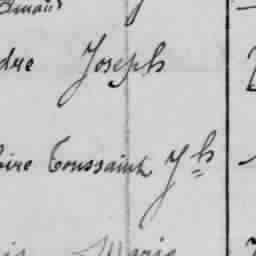 dre Joseph
oire Toussaint Jh
Marie